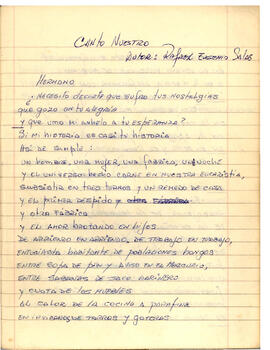 CANTO NUESTRO
AUTOR: Rafael Eugenio Salas
HERMANO
. NECESITO DECIRTE QUE SUFRO TUS NOSTALGIAS
QUE GOZO EN TU ALEGRIA
Y QUE UNO MI ANHELO A TU ESPERANZA?
SI MI HISTORIA ES CASI TU HISTORIA
ASI DE SIMPLE:
UN HOMBRE, UNA MUJER, UNA FABRICA, UN NOCHE
Y EL UNIVERSO HECHO CARNE EN NUESTRA EUCARISTIA,
SUBSISTIA EN TRES TURNOS Y UN REMEDO DE CASA
Y EL PRIMER DESPIDO Y
Y OTRA FABRICA
Y EL AMOR BROTANDO EN HIJOS
DE ARRIENDO EN ARRIENDO, DE TRABAJO EN TRABAJO,
HABITANTE DE POBLACIONES
ENTRE SOPA DE PAN Y
ENTRE SABANAS DE SACO HARINERO
Y CUOTA DE LOS MUEBLES
AL CALOR DE LA COCINA A PARAFINA
EN INVIERNO TARROS Y GOTERAS